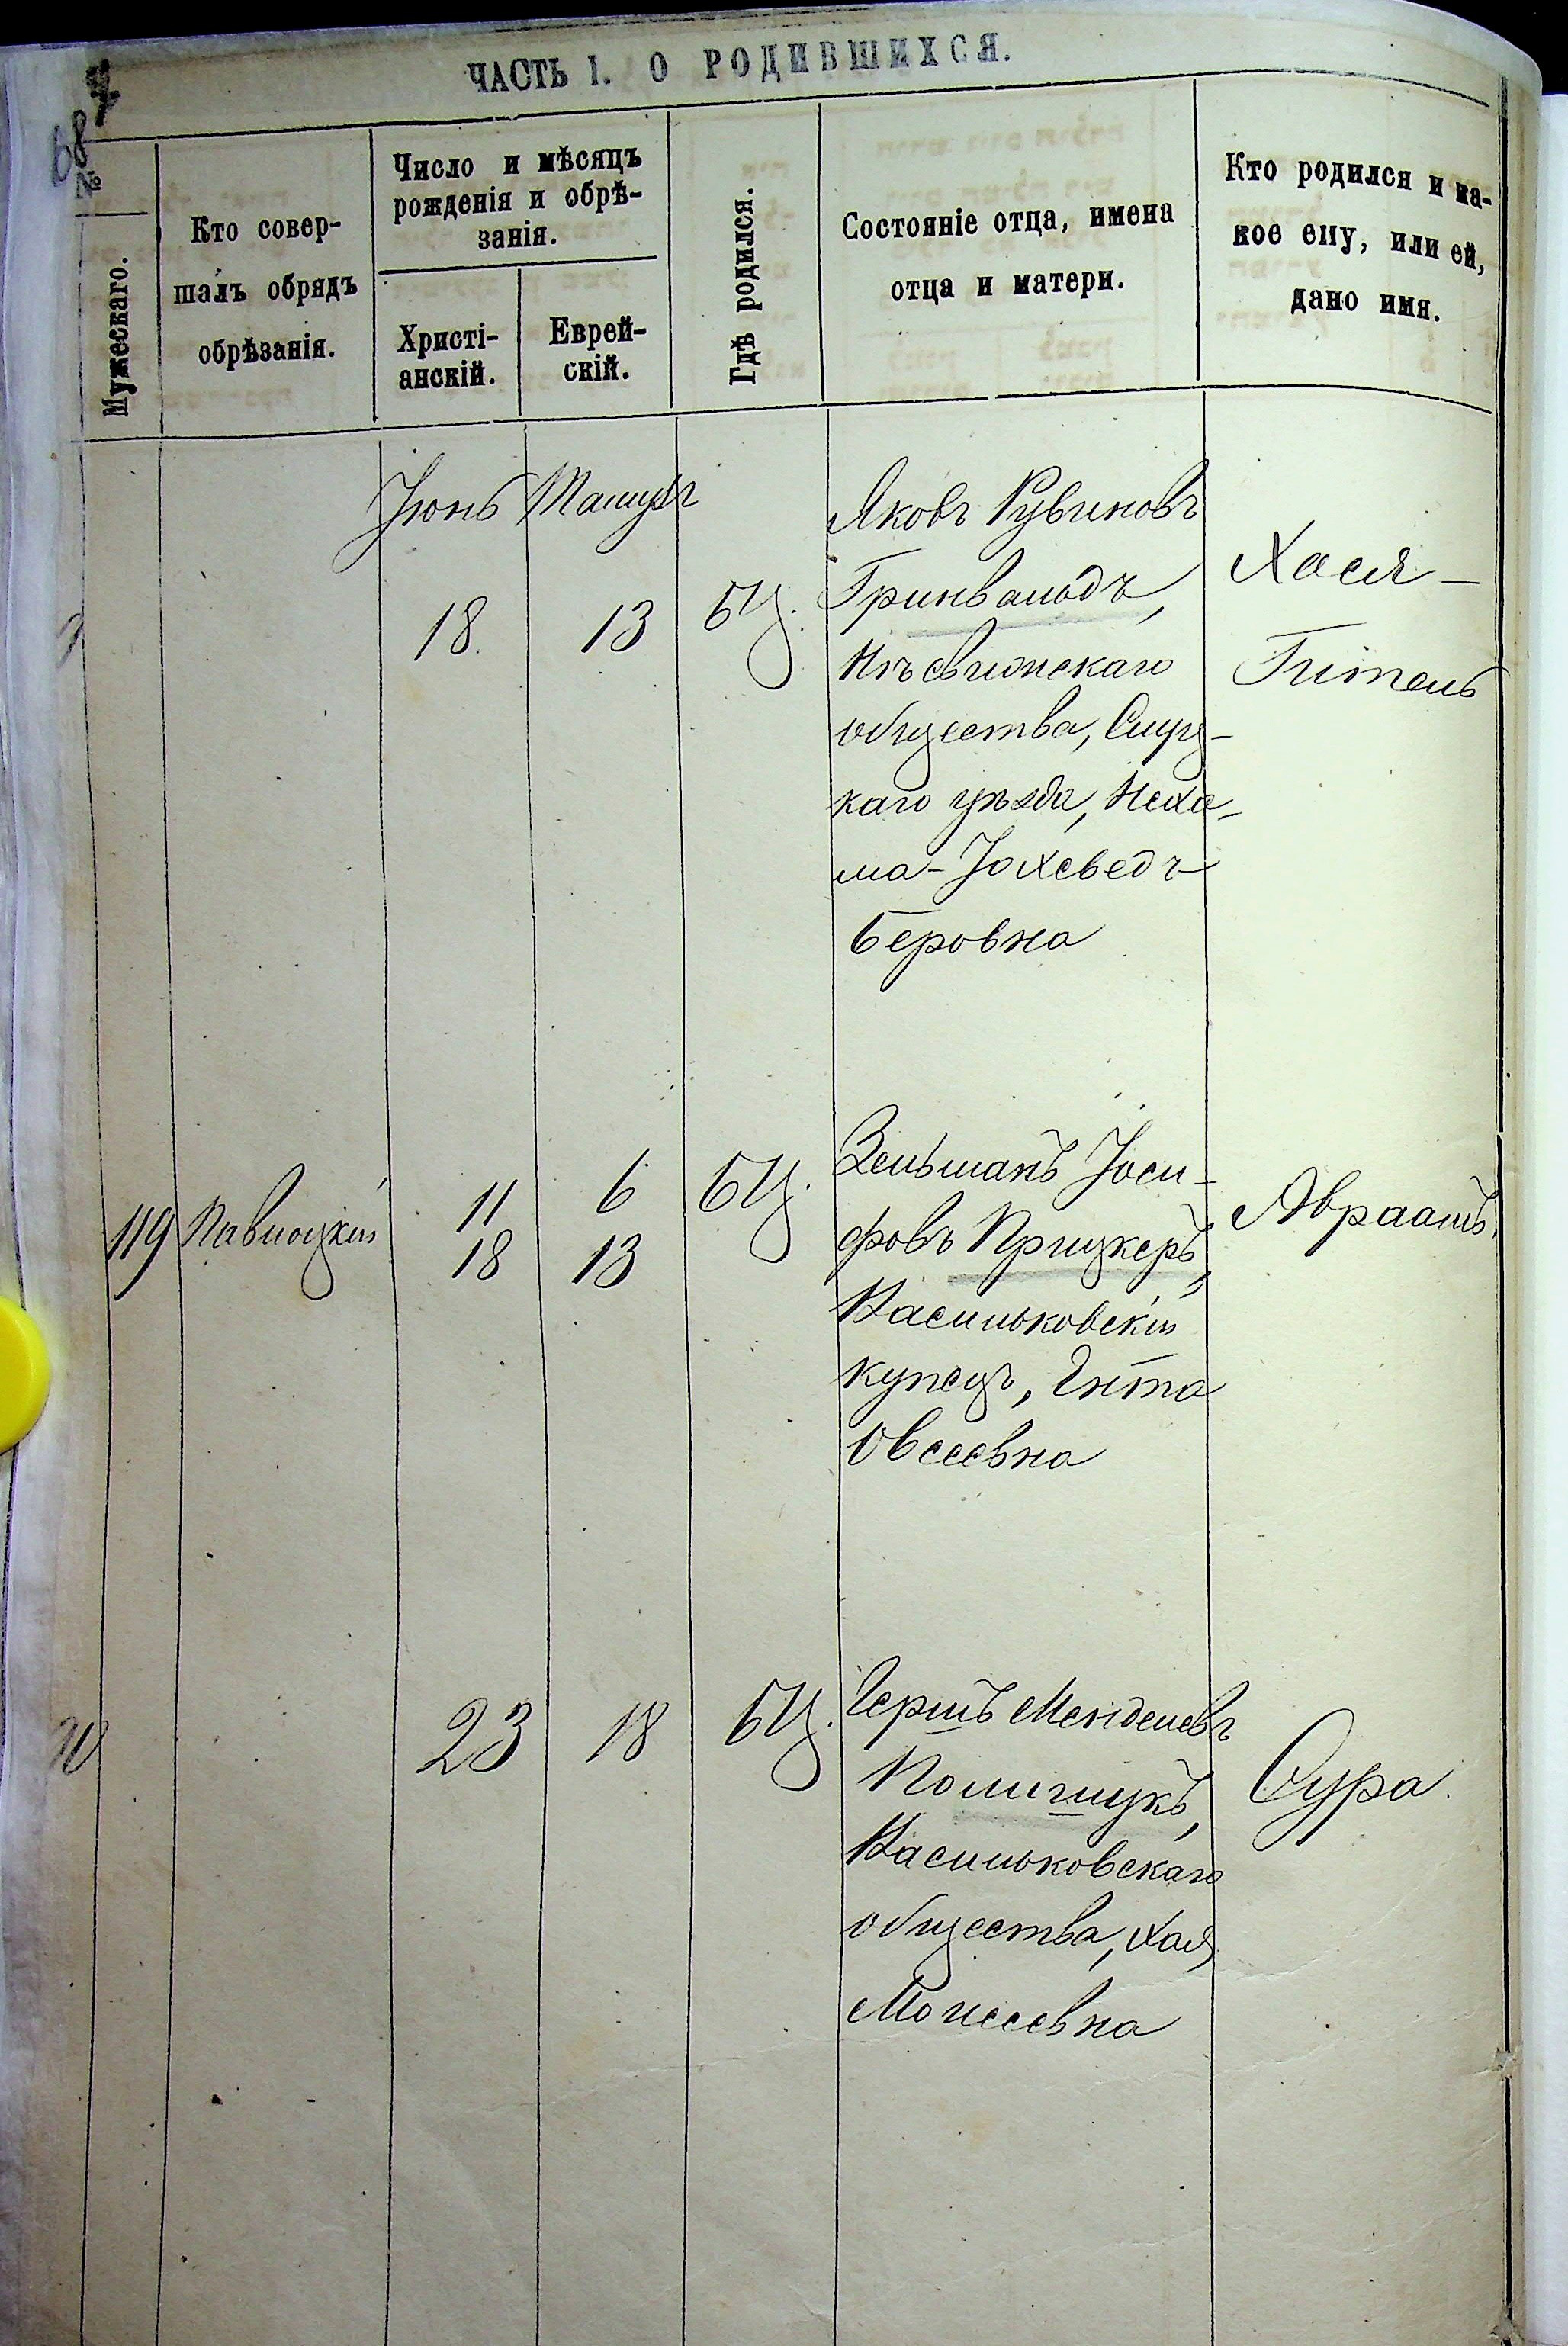 ЧАСТЬ I. О РОДИВШИХСЯ.
68
№
Мужескаго.
Кто совер-
шалъ обрядъ
обрѣзанія.
Число и мѣсяцъ
рожденія и обрѣ-
занія.
Христі-
анскій.
Еврей-
скій.
Гдѣ родился.
Состояніе отца, имена
отца и матери.
Кто родился и ка-
кое ему, или ей,
дано имя.
Іюнь Тамузъ
18. 13 БЦ.
Яковъ Рувиновъ
Гринвальдъ,
Нѣсвижскаго
общества, Слуц-
каго уѣзда, Неха-
ма-Іохеведъ
Беровна
Хася-
Гитель
119 Павлоцкій
11 6 БЦ.
18 13
Зельманъ Іоси-
фовъ Прицкеръ,
Васильковскій
купецъ, Ента
Овсеевна
Авраамъ.
23 18 БЦ.
Гершъ Менделевъ
Полищукъ,
Васильковскаго
общества, Хая
Моисеевна
Сура.